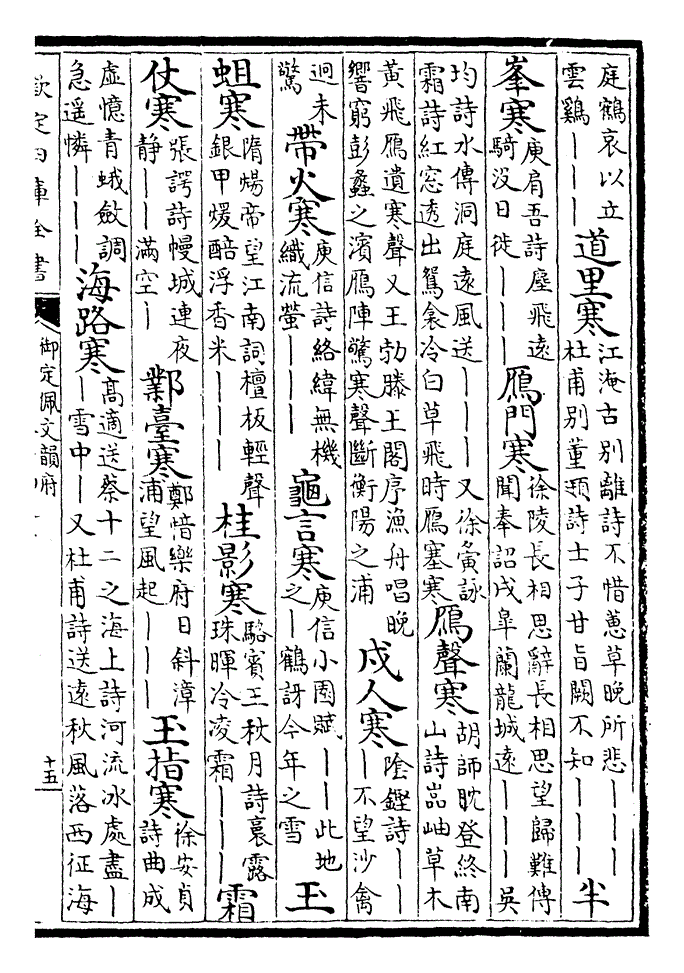 庭鶴哀以立雲鷄｜｜｜道里寒江淹古别離詩不惜蕙草晚所悲｜｜｜杜甫别董頲詩士子甘旨闕不知｜｜｜半
峯寒庾肩吾詩塵飛遠騎没日徙｜｜｜鴈門寒徐陵長相思辭長相思望歸難傳聞奉詔戍臯蘭龍城遠｜｜｜吳
均詩水傳洞庭遠風送｜｜｜又徐夤詠霜詩紅窓透出鴛衾冷白草飛時鴈塞寒鴈聲寒胡師耽登終南山詩嵓岫草木
黄飛鴈遺寒聲又王勃滕王閣序漁舟唱晚響窮彭蠡之濱鴈陣驚寒聲斷衡陽之浦戍人寒陰鏗詩｜｜｜不望沙禽
迥未驚帶火寒庾信詩絡緯無機織流螢｜｜｜龜言寒庾信小園賦｜｜此地之｜鶴訝今年之雪玉
蛆寒隋煬帝望江南詞檀板輕聲銀甲煖醅浮香米｜｜｜桂影寒駱賓王秋月詩裛露珠暉冷凌霜｜｜｜霜
仗寒張諤詩幔城連夜静｜｜滿空｜鄴臺寒鄭愔樂府日斜漳浦望風起｜｜｜玉指寒徐安貞詩曲成
虚憶青蛾斂調急遥憐｜｜｜海路寒高適送蔡十二之海上詩河流冰處盡｜｜雪中｜又杜甫詩送遠秋風落西征海
欽定四庫全書
御定佩文韻府
十五